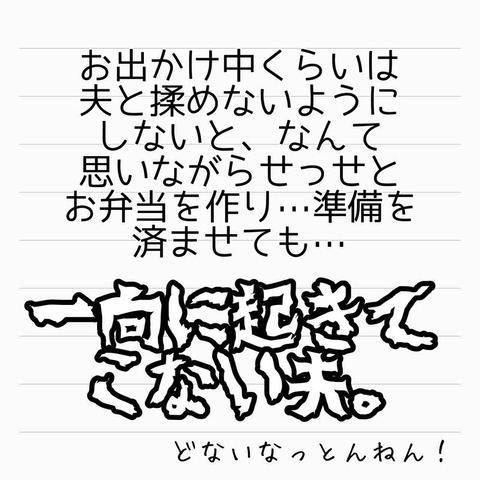 お出かけ中くらいは
夫と揉めないように
しないと、なんて
思いながらせっせと
お弁当を作り…準備を
済ませても…
一向に起きて
こない夫。
どないなっとんねん！